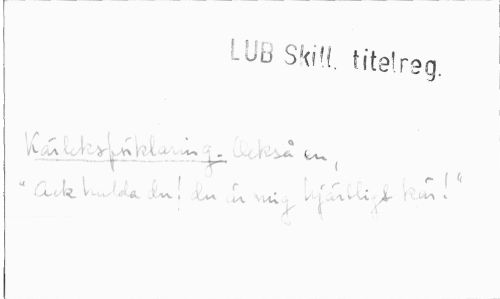 LUB Skill. titelreg.
Kärleksförklaring. Också en,
"Ack hulda du! du är mig hjärtligt kär!"